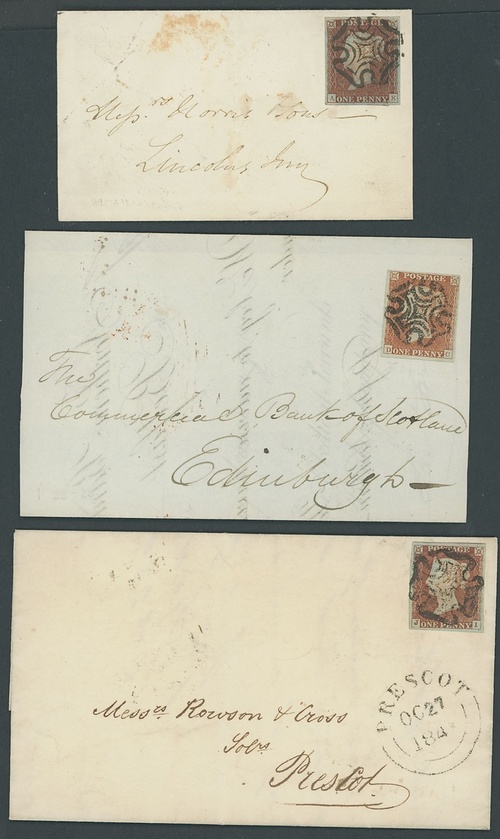 POSTAGE
ONE PENNY
Messrs Morris & Sons
Lincolns Inn
POSTAGE
D ONE PENNY
The
Commercial Bank of Scotland
Edinburgh
POSTAGE
ONE PENNY I
PRESCOT
OC 27
184
Messrs Rowson & Cross
Solrs
Prescot